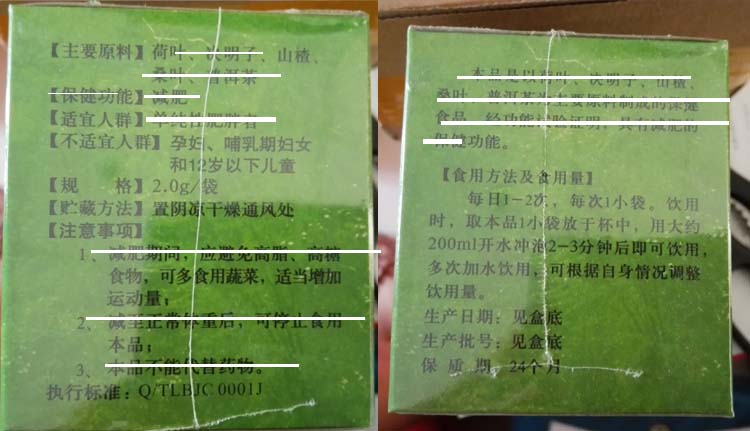 【主要原料】荷叶、决明子、山楂、
桑叶、普洱茶
【保健功能】减肥
【适宜人群】单纯性肥胖者
【不适宜人群】孕妇、哺乳期妇女
和12岁以下儿童
【规　　格】2.0g/袋
【贮藏方法】置阴凉干燥通风处
【注意事项】
1、减肥期间，应避免高脂、高糖
食物，可多食用蔬菜，适当增加
运动量；
2、减至正常体重后，可停止食用
本品；
3、本品不能代替药物。
执行标准：Q/TLBJC 0001J
本品是以荷叶、决明子、山楂、
桑叶、普洱茶为主要原料制成的保健
食品，经功能试验证明，具有减肥的
保健功能。
【食用方法及食用量】
每日1-2次，每次1小袋。饮用
时，取本品1小袋放于杯中，用大约
200ml开水冲泡2-3分钟后即可饮用，
多次加水饮用，可根据自身情况调整
饮用量。
生产日期：见盒底
生产批号：见盒底
保 质 期：24个月